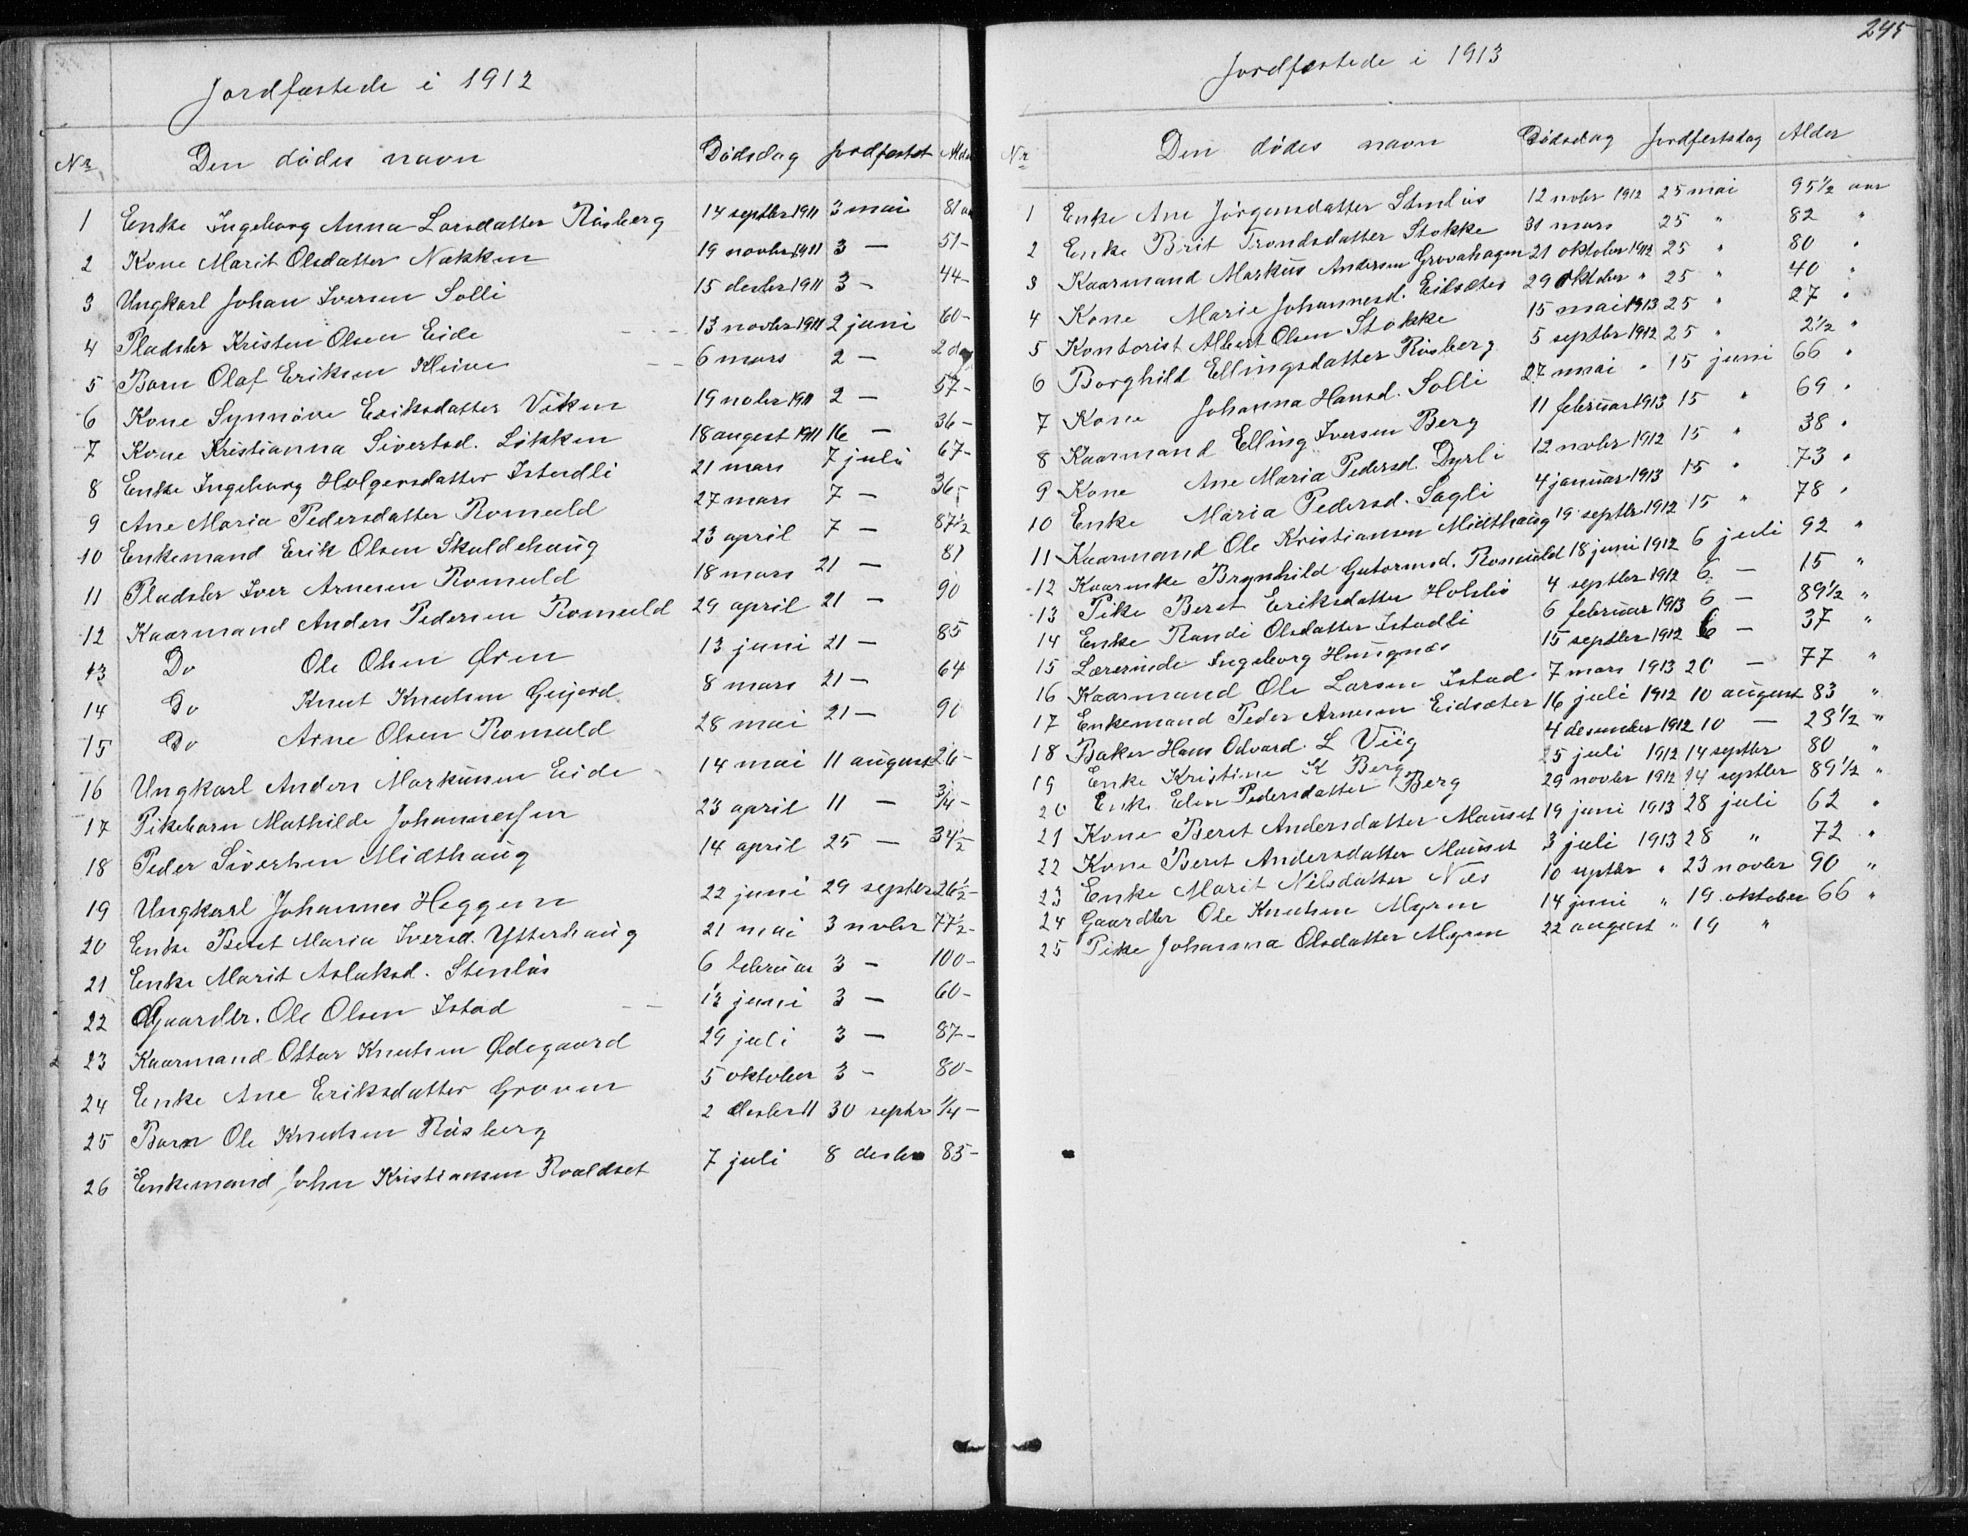 Jordfæstede i 1912
Nr. Den dødes navn Dødsdag Jordfæstet Alder
1 Enke Ingeborg Anna Larsdatter Røsberg 14 septbr 1911 3 mai 81 aar
2 Kone Marit Olsdatter Nakken 19 novbr 1911 3 — 51 -
3 Ungkarl Johan Iversen Solli 15 desbr 1911 3 - 44 -
4 Pladsbr Kristen Olsen Eide 13 novbr 1911 2 juni 60 -
5 Barn Olaf Eriksen Kleive 6 mars 2 — 2 dag
6 Kone Synnøve Eriksdatter Viken 19 nobr 1911 2 — 57 -
7 Kone Kristianna Sivertsd. Løkken 18 augest 1911 16 — 36 -
8 Enke Ingeborg Holgersdatter Istadli 21 mars 7 juli 67 -
9 Ane Maria Pedersdatter Romuld 27 mars 7 — 36 -
10 Enkemand Erik Olsen Skaldehaug 23 april 7 — 87½
11 Pladsbr Iver Arnesen Romuld 18 mars 21 — 81
12 Kaarmand Anders Pedersen Romuld 29 april 21 — 90
13 Do Ole Olsen Øren 13 juni 21 — 85
14 Do Knut Knutsen Gujord 8 mars 21 — 64
15 Do Arne Olsen Romuld 28 mai 21 — 90
16 Ungkarl Anders Markussen Eide 14 mai 11 august 26 -
17 Pikebarn Mathilde Johannessen 23 april 11 — ¾ -
18 Peder Sivertsen Midthaug 14 april 25 — 34½
19 Ungkarl Johannes Heggem 22 juni 29 septbr 26½ -
20 Enke Beret Maria Iversd. Ytterhaug 21 mai 3 novbr 77½ -
21 Enke Marit Aslaksd. Stenløs 6 februar 3 — 100 -
22 Gaardbr. Ole Olsen Istad 13 juni 3 — 60 -
23 Kaarmand Ottar Knutsen Ødegaard 29 juli 3 — 87 -
24 Enke Ane Eriksdatter Groven 5 oktober 3 - 80 -
25 Barn Ole Knutsen Røsberg 2 desbr 11 30 septr ¼ -
26 Enkemand John Kristiansen Roaldset 7 juli 8 desbr 85 -
245
Jordfæstede i 1913
Nr. Den dødes navn Dødsdag Jordfestsdag Alder
1 Enke Ane Jørgensdatter Stenløs 12 novbr 1912 25 mai 95½ aar
2 Enke Brit Trondsdatter Stokke 31 mars 25 " 82 "
3 Kaarmand Markus Andersen Grovahagen 21 oktober 1912 25 " 80 "
4 Kone Marie Johannesd. Eidsæter 29 oktober " 25 " 40 "
5 Kontorist Albert Olsen Stokke 15 mai 1913 25 " 27 "
6 Borghild Ellingsdatter Røsberg 5 septbr 1912 25 " 2½ "
7 Kone Johanna Hansd. Solli 27 mai " 15 juni 66 "
8 Kaarmand Elling Iversen Berg 11 februar 1913 15 " 69 "
9 Kone Ane Maria Pedersd. Dyrli 12 novbr 1912 15 " 38 "
10 Enke Maria Pedersd. Sagli 4 januar 1913 15 " 73 "
11 Kaarmand Ole Kristiansen Midthaug 19 septbr 1912 15 " 78 "
12 Kaarenke Brynhild Gutormsd. Romuld 18 juni 1912 6 juli 92 "
13 Pike Beret Eriksdatter Holsbø 4 septbr 1912 6 — 15 "
14 Enke Randi Olsdatter Istadli 6 februar 1913 6 — 89½ "
15 Lærerinde Ingeborg Haugnæs 15 septbr 1912 6 — 37 "
16 Kaarmand Ole Larsen Istad 7 mars 1913 20 — 77 "
17 Enkemand Peder Arnesen Eidsæter 16 juli 1912 10 august 83 "
18 Baker Hans Odvard L Viig 4 desember 1912 10 — 28½ "
19 Enke Kristine K Berg 25 juli 1912 14 septbr 80 "
20 Enke Elen Pedersdatter Berg 29 novbr 1912 14 septbr 89½ "
21 Kone Beret Andersdatter Mauset 19 juni 1913 28 juli 62 "
22 Kone Beret Andersdatter Mauset 3 juli 1913 28 " 72 "
23 Enke Marit Nilsdatter Næs 10 septbr " 23 novbr 90 "
24 Gaardbr Ole Knutsen Myren 14 juni " 19 oktober 66 "
25 Pike Johanna Olsdatter Myren 22 august " 19 "